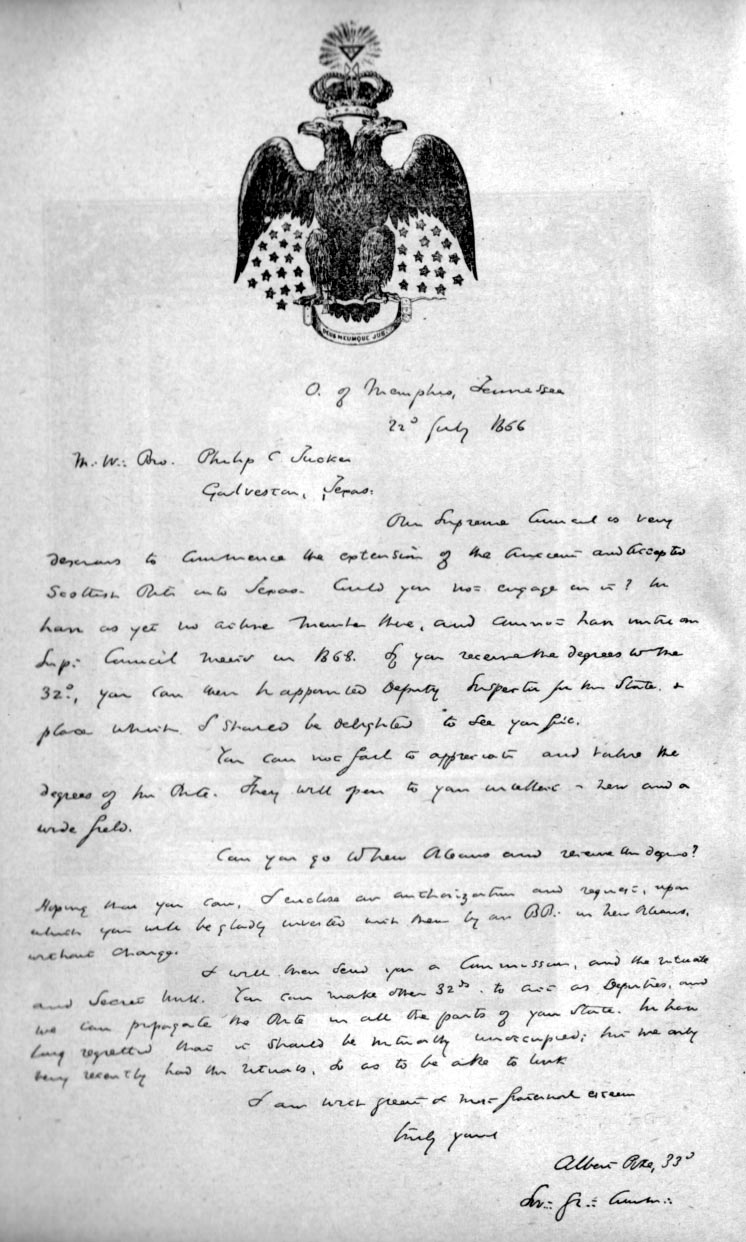 DEUS MEUMQUE JUS
O. of Memphis, Tennessee
22d July 1866
M∴ W∴ Bro. Philip C Tucker
Galveston, Texas:
Our Supreme Council is very
desirous to commence the extension of the Ancient and Accepted
Scottish Rite into Texas. Could you not engage in it? We
have as yet no active Member there, and cannot have until our
Sup∴ Council meets in 1868. If you receive the degrees to the
32d, you can then be appointed Deputy Inspector for the State, a
place which I should be delighted to see you fill.
You can not fail to appreciate and value the
degrees of the Rite. They will open to your intellect a new and a
wide field.
Can you go to New Orleans and receive the degrees?
Hoping that you can, I enclose an authorization and request, upon
which you will be gladly invested with them by our BB. in New Orleans,
without charge.
I will then send you a Commission, and the rituals
and Secret Work. You can make other 32ds. to act as Deputies, and
we can propagate the Rite in all the parts of your State. We have
long regretted that it should be virtually unoccupied; but we only
very recently had the rituals, so as to be able to work
I am with great & most fraternal esteem
truly yours
Albert Pike, 33d
Sov∴ Gr∴ Comm∴